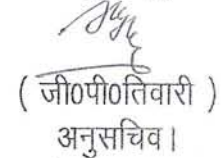 ( जी0पी0तिवारी )
अनुसचिव।